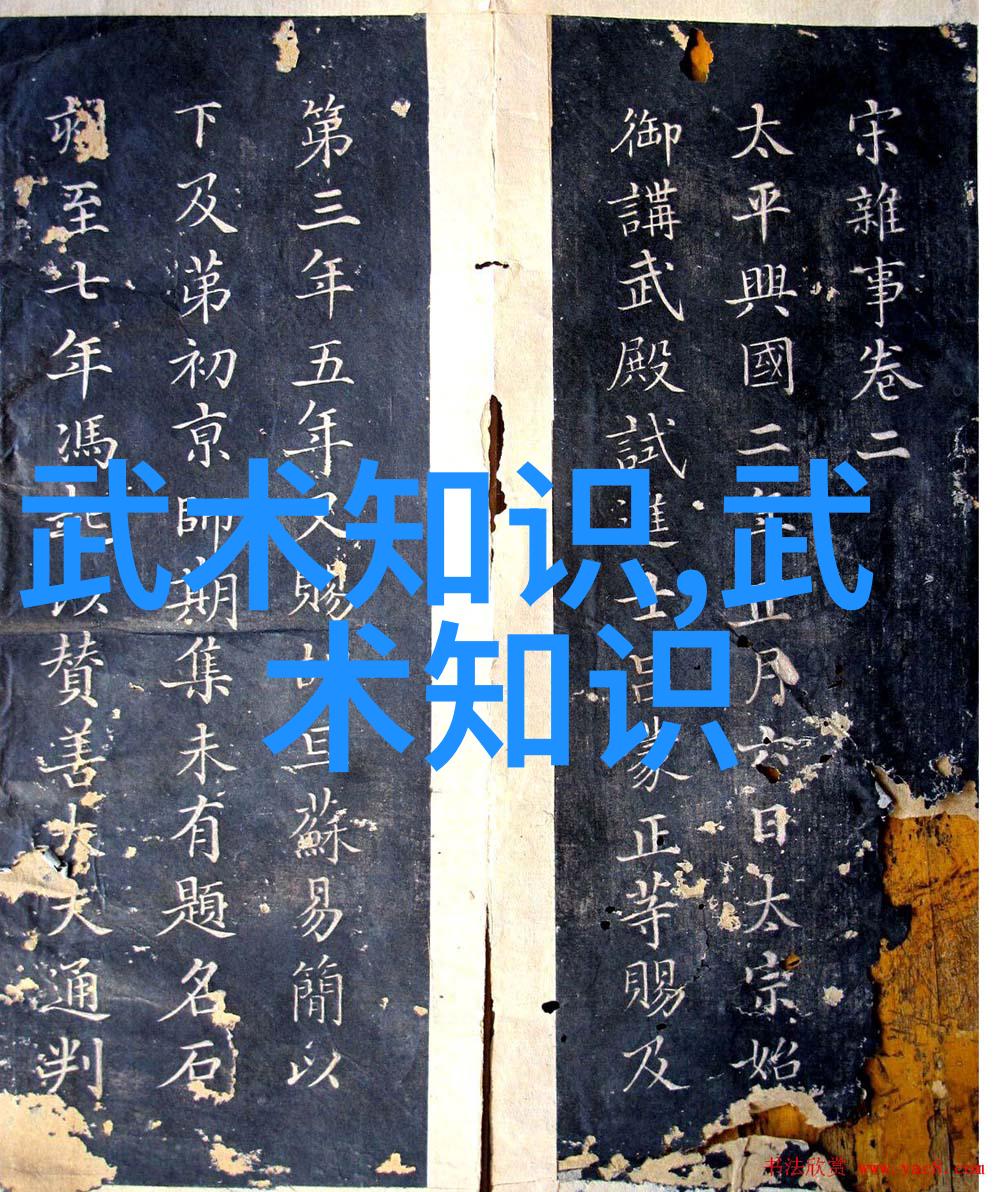 宋雜事卷二
太平興國二年正月六日太宗始
御講武殿試進士呂蒙正等賜及
第三年五年又賜旦蘇易簡以
下及苐初亰師期集未有題名石
至七年馮以贊善大夫通判
武术知识,武
术知识
书法欣赏 www.yac8.com